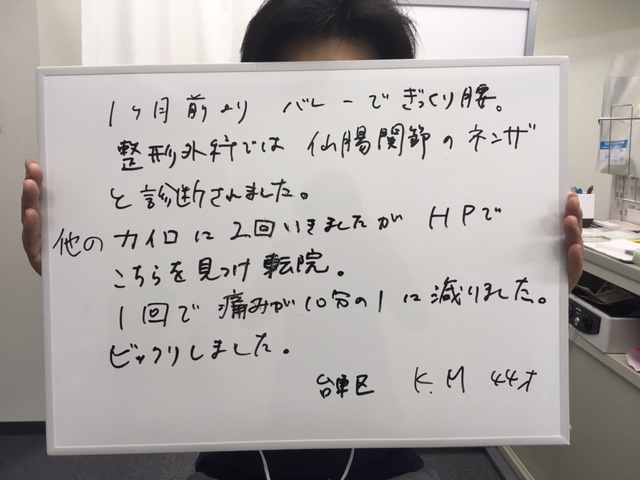 1ヶ月前より バレーでぎっくり腰。
整形外科では 仙腸関節のネンザ
と診断されました。
他のカイロに2回いきましたが HPで
こちらを見つけ転院。
1回で 痛みが10分の1に減りました。
ビックリしました。
台東区 K.M 44才